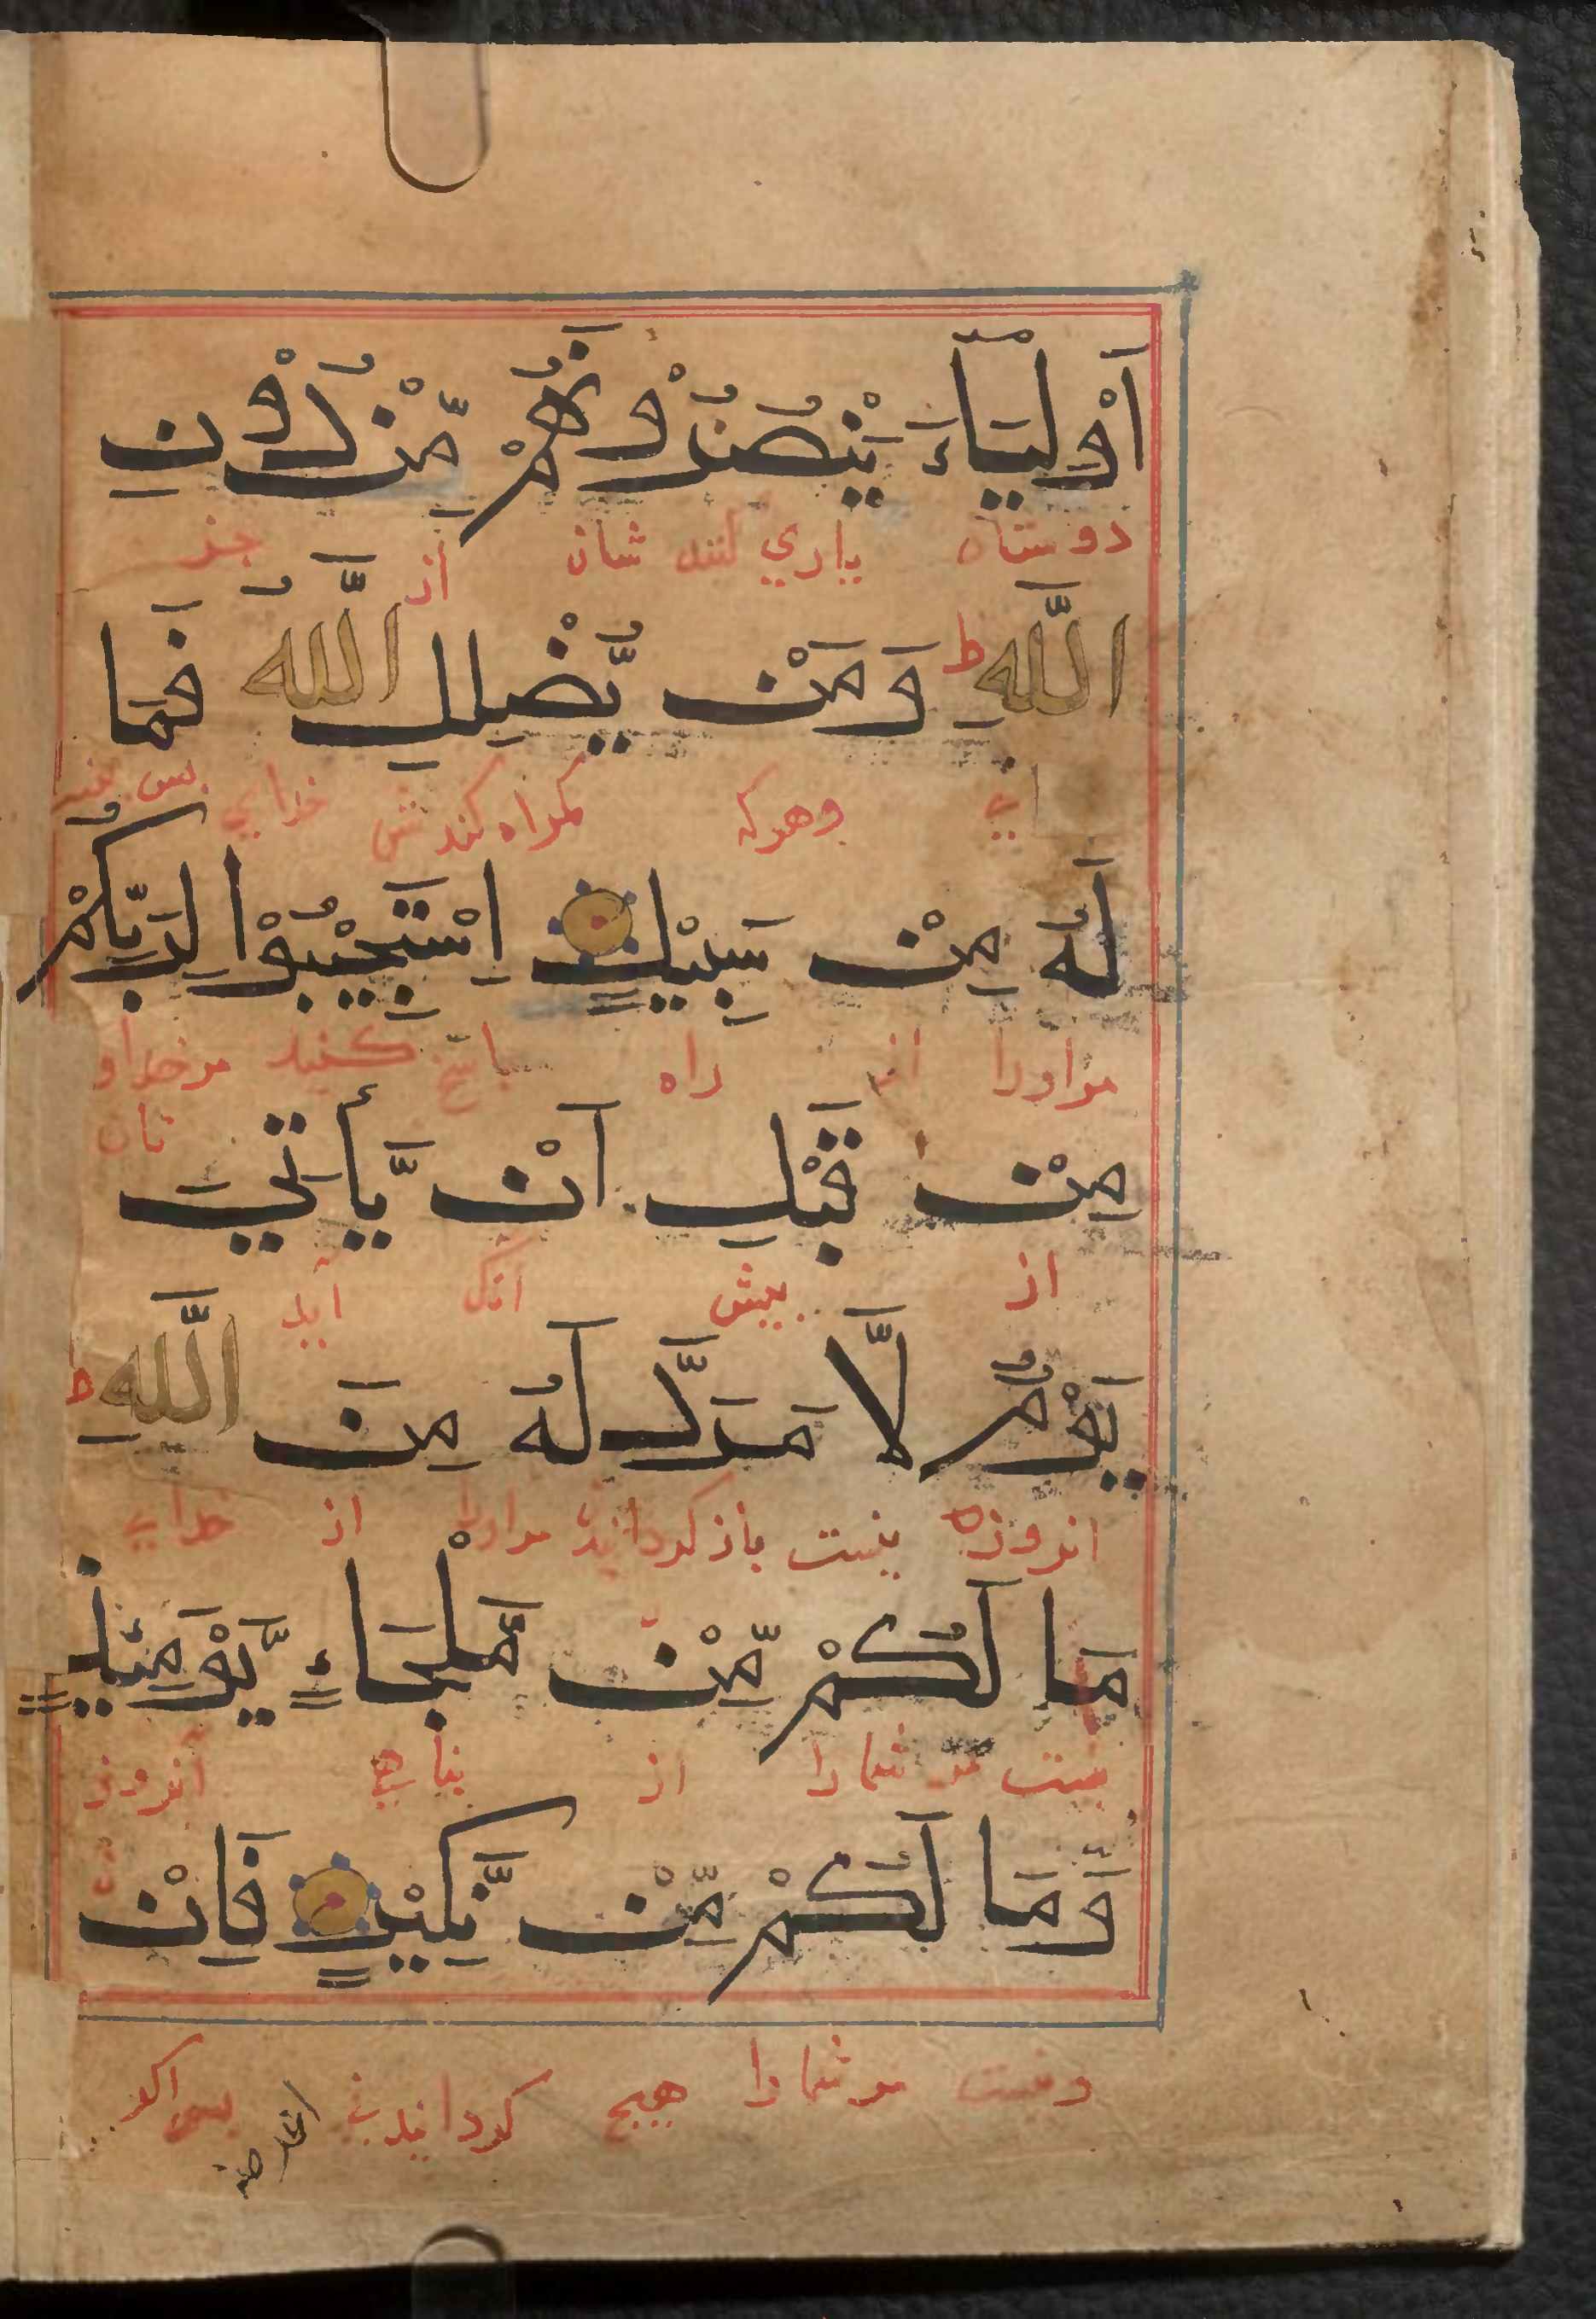 اَوْلِيَآءَ يَنْصُرُوْنَهُمْ مِّنْ دُوْنِ
دوستان یاري کنند شان از جز
اللّٰهِ ط وَمَنْ يُّضْلِلِ اللّٰهُ فَمَا
وهرکه کمراه کندش خدای بس نیست
لَهُ مِنْ سَبِيْلٍ اِسْتَجِيْبُوْا لِرَبِّكُمْ
مراورا از راه باسخ کنید مرخداو
تان
مِنْ قَبْلِ اَنْ يَّأْتِيَ
از بیش انک آید
يَوْمٌ لَّا مَرَدَّ لَهُ مِنَ اللّٰهِ ط
انروزه نیست بازکردانیدن مراورا از خدای
مَا لَكُمْ مِّنْ مَّلْجَاءٍ يَّوْمَئِذٍ
نیست مر شما را از بناهي آنروز
وَّمَا لَكُمْ مِّنْ نَّكِيْرٍ فَاِنْ
ونیست مر شما را هیچ کردانیدنی بس اکر